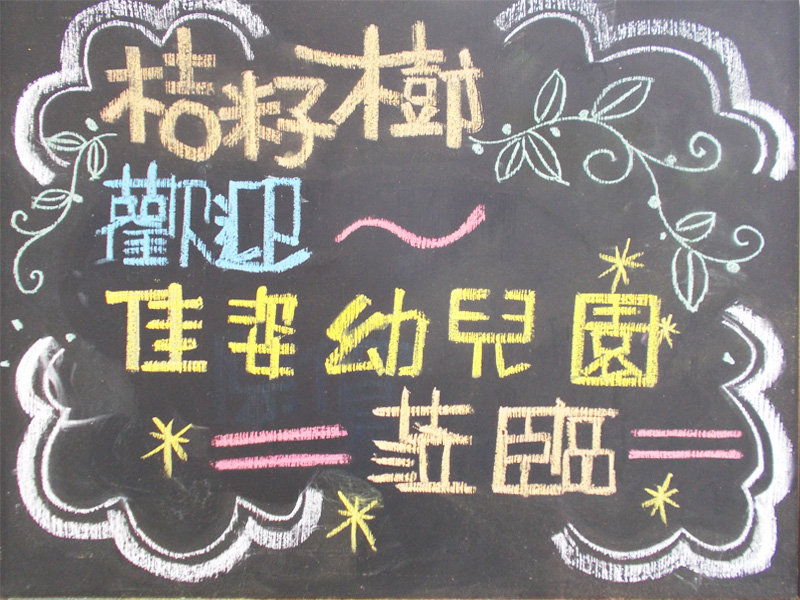 桔籽樹
歡迎～
佳幼兒園
蒞臨